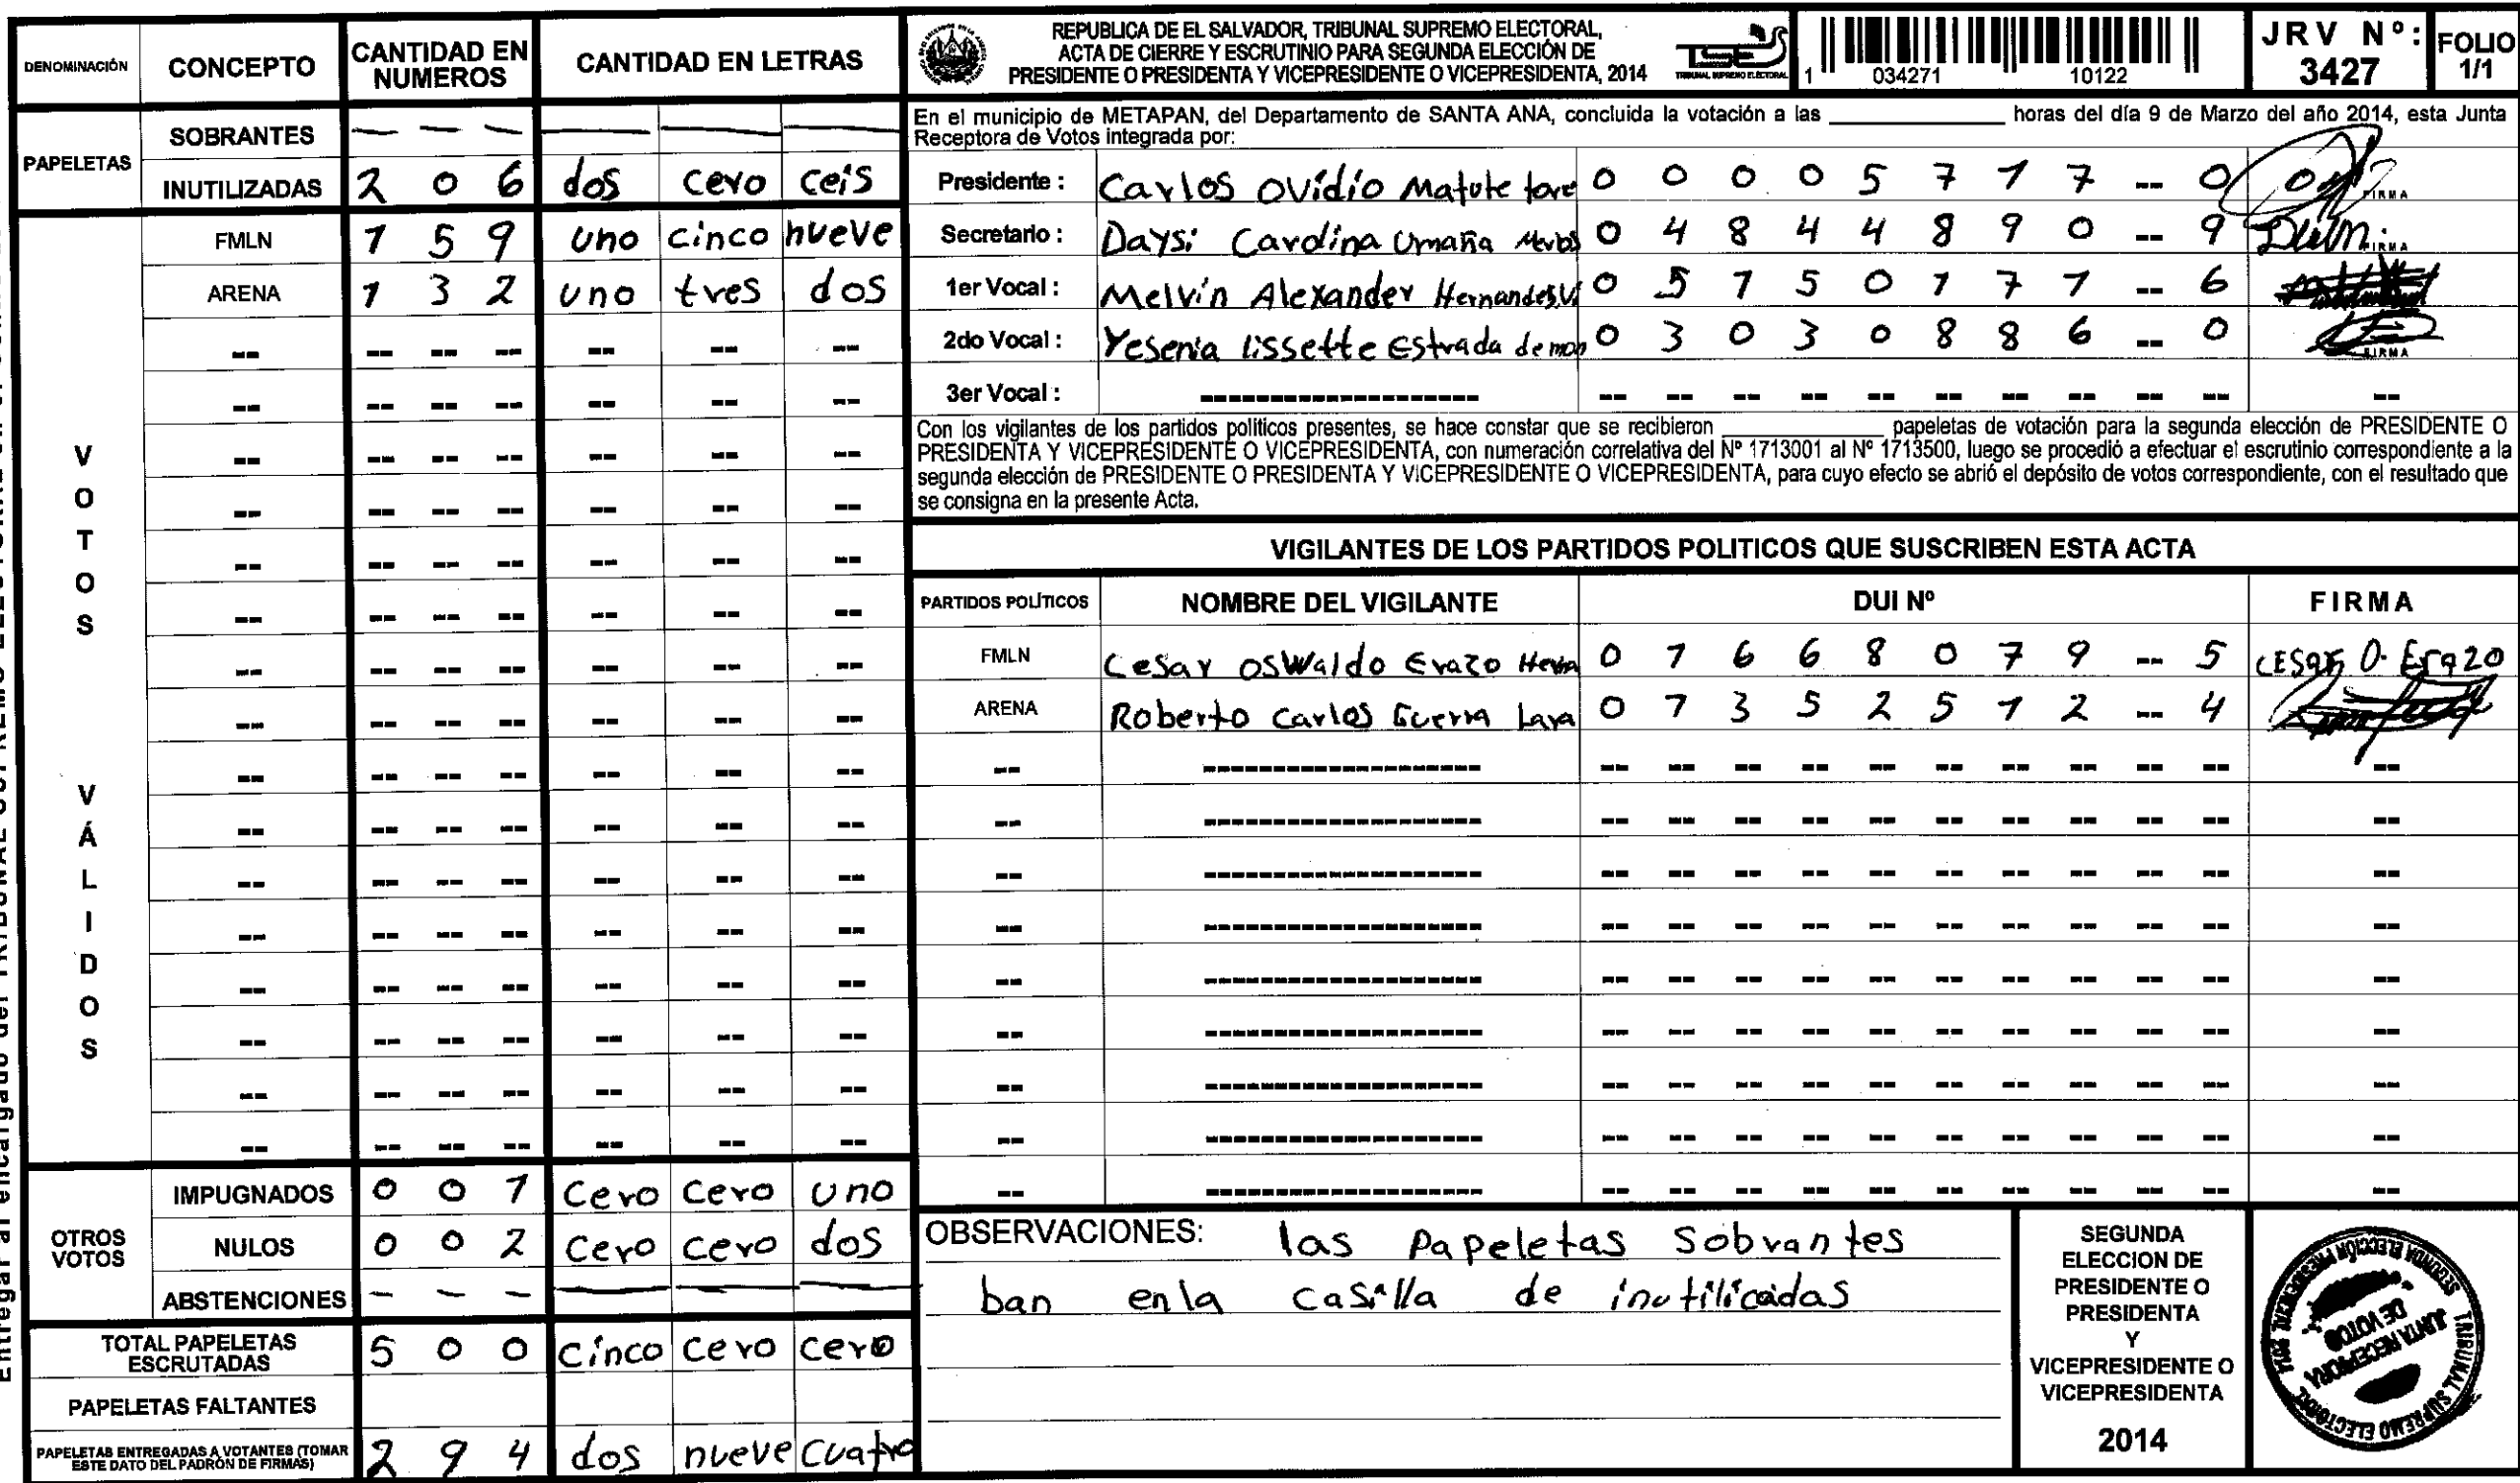 DENOMINACIÓN CONCEPTO CANTIDAD EN NUMEROS CANTIDAD EN LETRAS
PAPELETAS
SOBRANTES — — — — — —
INUTILIZADAS 2 0 6 dos cero ceis
VOTOS VÁLIDOS
FMLN 1 5 9 uno cinco nueve
ARENA 1 3 2 uno tres dos
OTROS VOTOS
IMPUGNADOS 0 0 1 Cero Cero uno
NULOS 0 0 2 Cero Cero dos
ABSTENCIONES — — — — — —
TOTAL PAPELETAS ESCRUTADAS 5 0 0 Cinco Cero Cero
PAPELETAS FALTANTES
PAPELETAS ENTREGADAS A VOTANTES (TOMAR ESTE DATO DEL PADRÓN DE FIRMAS) 2 9 4 dos nueve Cuatro
REPUBLICA DE EL SALVADOR, TRIBUNAL SUPREMO ELECTORAL,
ACTA DE CIERRE Y ESCRUTINIO PARA SEGUNDA ELECCIÓN DE
PRESIDENTE O PRESIDENTA Y VICEPRESIDENTE O VICEPRESIDENTA, 2014
TSE
TRIBUNAL SUPREMO ELECTORAL
1 034271 10122
JRV Nº: 3427
FOLIO 1/1
En el municipio de METAPAN, del Departamento de SANTA ANA, concluida la votación a las ____ horas del día 9 de Marzo del año 2014, esta Junta
Receptora de Votos integrada por:
Presidente : Carlos Ovidio Matute 0 0 0 0 5 7 1 7 -- 0 FIRMA
Secretario : Daysi Carolina Umaña 0 4 8 4 4 8 9 0 -- 9 FIRMA
1er Vocal : Melvin Alexander Hernandes 0 5 1 5 0 1 7 1 -- 6
2do Vocal : Yesenia lissette Estrada de 0 3 0 3 0 8 8 6 -- 0 FIRMA
3er Vocal :
Con los vigilantes de los partidos políticos presentes, se hace constar que se recibieron ____ papeletas de votación para la segunda elección de PRESIDENTE O
PRESIDENTA Y VICEPRESIDENTE O VICEPRESIDENTA, con numeración correlativa del Nº 1713001 al Nº 1713500, luego se procedió a efectuar el escrutinio correspondiente a la
segunda elección de PRESIDENTE O PRESIDENTA Y VICEPRESIDENTE O VICEPRESIDENTA, para cuyo efecto se abrió el depósito de votos correspondiente, con el resultado que
se consigna en la presente Acta.
VIGILANTES DE LOS PARTIDOS POLITICOS QUE SUSCRIBEN ESTA ACTA
PARTIDOS POLÍTICOS NOMBRE DEL VIGILANTE DUI Nº FIRMA
FMLN Cesar Oswaldo Erazo 0 1 6 6 8 0 7 9 -- 5 CESAR O. Erazo
ARENA Roberto Carlos Guerra Lara 0 1 3 5 2 5 1 2 -- 4
OBSERVACIONES: las Papeletas Sobrantes
ban en la casilla de inutilicadas
SEGUNDA
ELECCION DE
PRESIDENTE O
PRESIDENTA
Y
VICEPRESIDENTE O
VICEPRESIDENTA
2014
TRIBUNAL SUPREMO ELECTORAL
JUNTA RECEPTORA
DE VOTOS